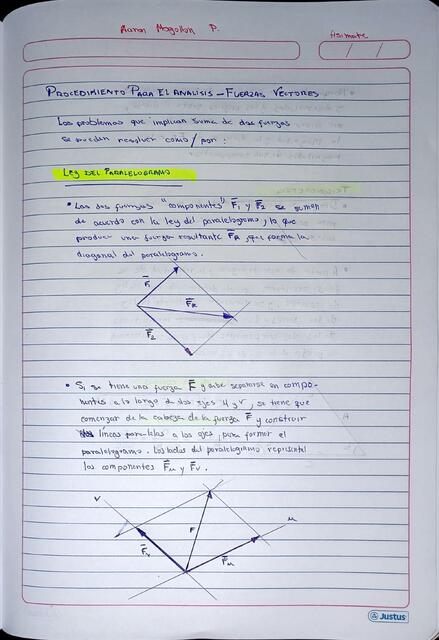 Aaron Mogollon P.
fisimate
/ /
PROCEDIMIENTO PARA EL ANALISIS - FUERZAS VECTORES
Los problemas que implican suma de dos fuerzas
se pueden resolver como/por:
LEY DEL PARALELOGRAMO
• Las dos fuerzas "componentes" F₁ y F₂ se suman
de acuerdo con la ley del paralelogramo, lo que
produce una fuerza resultante F_R, que forma la
diagonal del paralelogramo.
F₁
F_R
F₂
• Si se tiene una fuerza F y debe separarse en compo-
nentes a lo largo de dos ejes u y v, se tiene que
comenzar de la cabeza de la fuerza F y construir
líneas paralelas a los ejes, para formar el
paralelogramo. Los lados del paralelogramo representa
los componentes F_u y F_v.
v
u
F
F_v
F_u
Justus